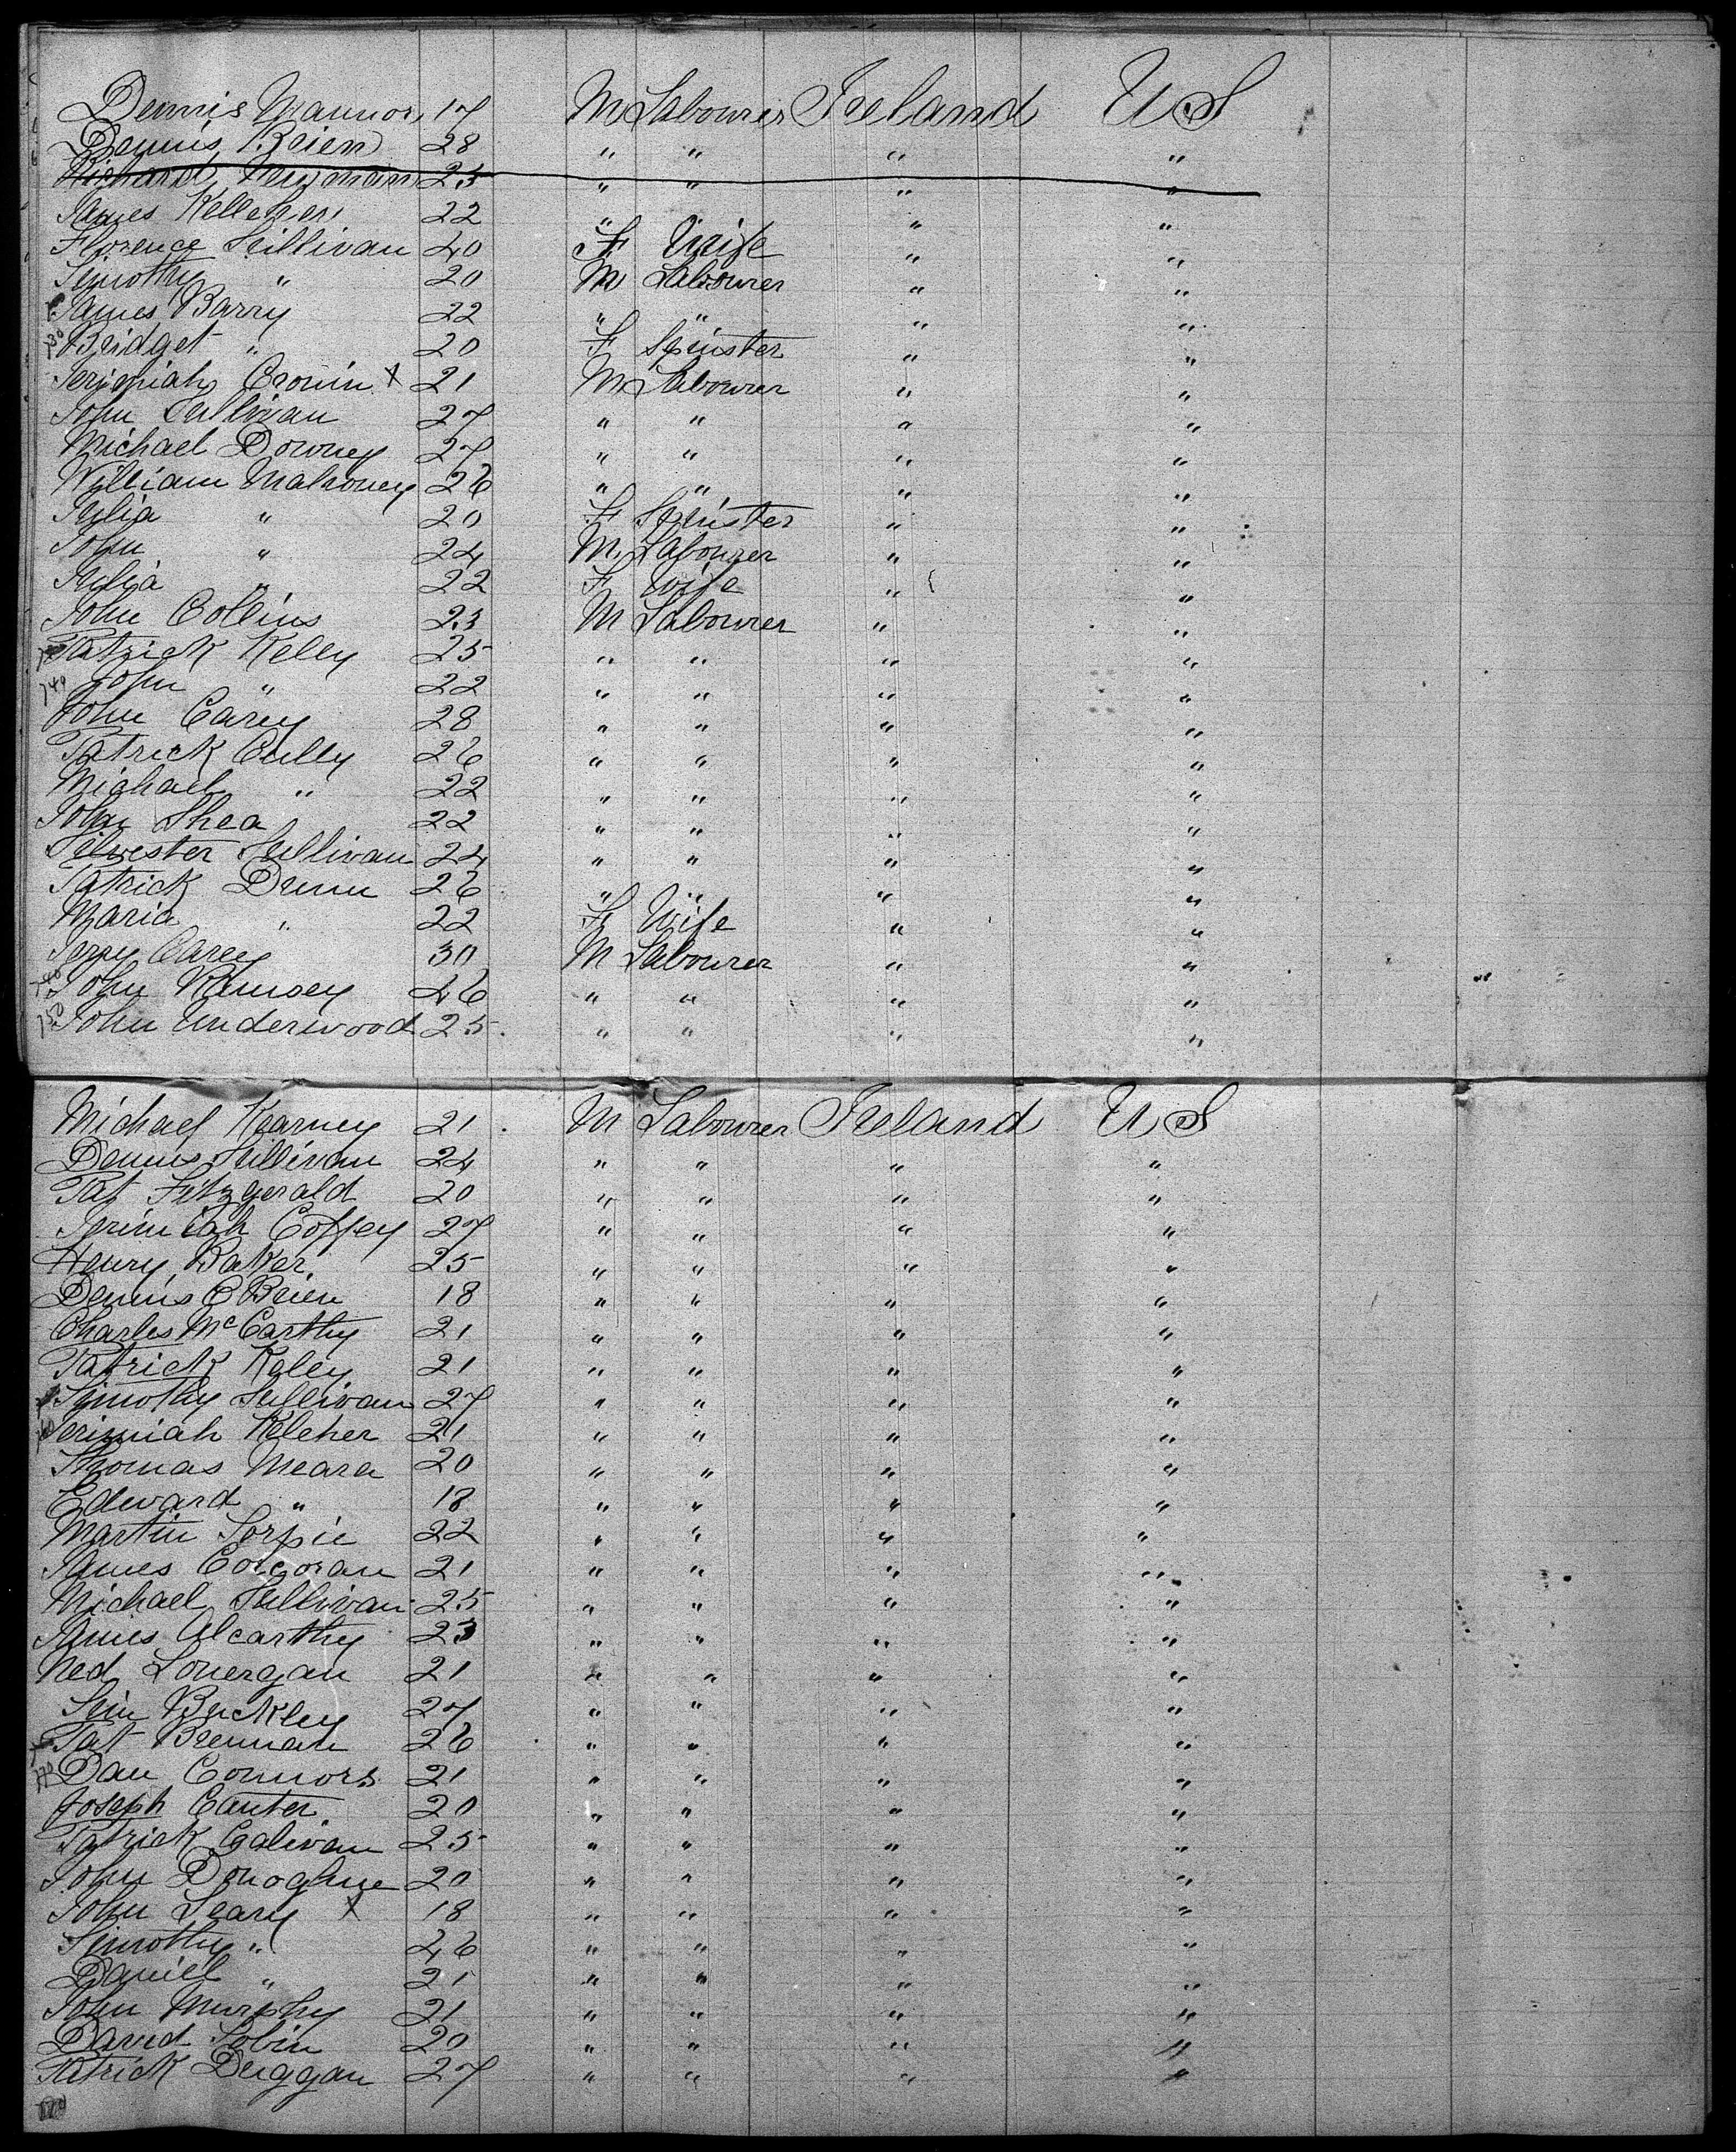 Dennis Mannor 17 M Labourer Ireland U S
Dennis Brien 28 " " " "
Richard 25 " " " "
James Kelleher 22 " " "
Florence Sullivan 40 F Wife " "
Timothy " 20 M Labourer " "
James Barry 22 " " " "
730 Bridget " 20 F Spinster " "
Jerimiah Cronin X 21 M Labourer " "
John Sullivan 27 " " " "
Michael Downey 27 " " " "
William Mahoney 26 " " " "
Julia " 20 F Spinster " "
John " 24 M Labourer " "
Julia " 22 F Wife " "
John Collins 23 M Labourer " "
Patrick Kelly 25 " " " "
740 John " 22 " " " "
John Carey 28 " " " "
Patrick Cully 26 " " " "
Michael " 22 " " " "
John Shea 22 " " " "
Silvester Sullivan 24 " " " "
Patrick Dunn 26 " " " "
Maria " 22 F Wife " "
Jerry Carey 30 M Labourer " "
John Ramsey 46 " " " "
750 John Underwood 25 " " " "
Michael Kearney 21 M Labourer Ireland U S
Dennis Sullivan 24 " " " "
Pat Fitzgerald 20 " " " "
Jerimiah Coffey 27 " " " "
Henry Baker 25 " " " "
Dennis O Brien 18 " " " "
Charles McCarthy 21 " " " "
Patrick Kaley 21 " " " "
Timothy Sullivan 27 " " " "
760 Jerimiah Keleher 21 " " " "
Thomas Meara 20 " " " "
Edward " 18 " " " "
Martin Torpie 22 " " " "
James Corcoran 21 " " " "
Michael Sullivan 25 " " " "
James Alcarthy 23 " " " "
Ned Lonergan 21 " " " "
Jim Buckley 27 " " " "
Pat Brennan 26 " " " "
770 Dan Connors 21 " " " "
Joseph Canter 20 " " " "
Patrick Galivan 25 " " " "
John Donoghue 20 " " " "
John Leary X 18 " " " "
Timothy " 26 " " " "
Daniel " 21 " " " "
John Murphy 21 " " " "
David Tobin 20 " " " "
Patrick Duggan 27 " " " "